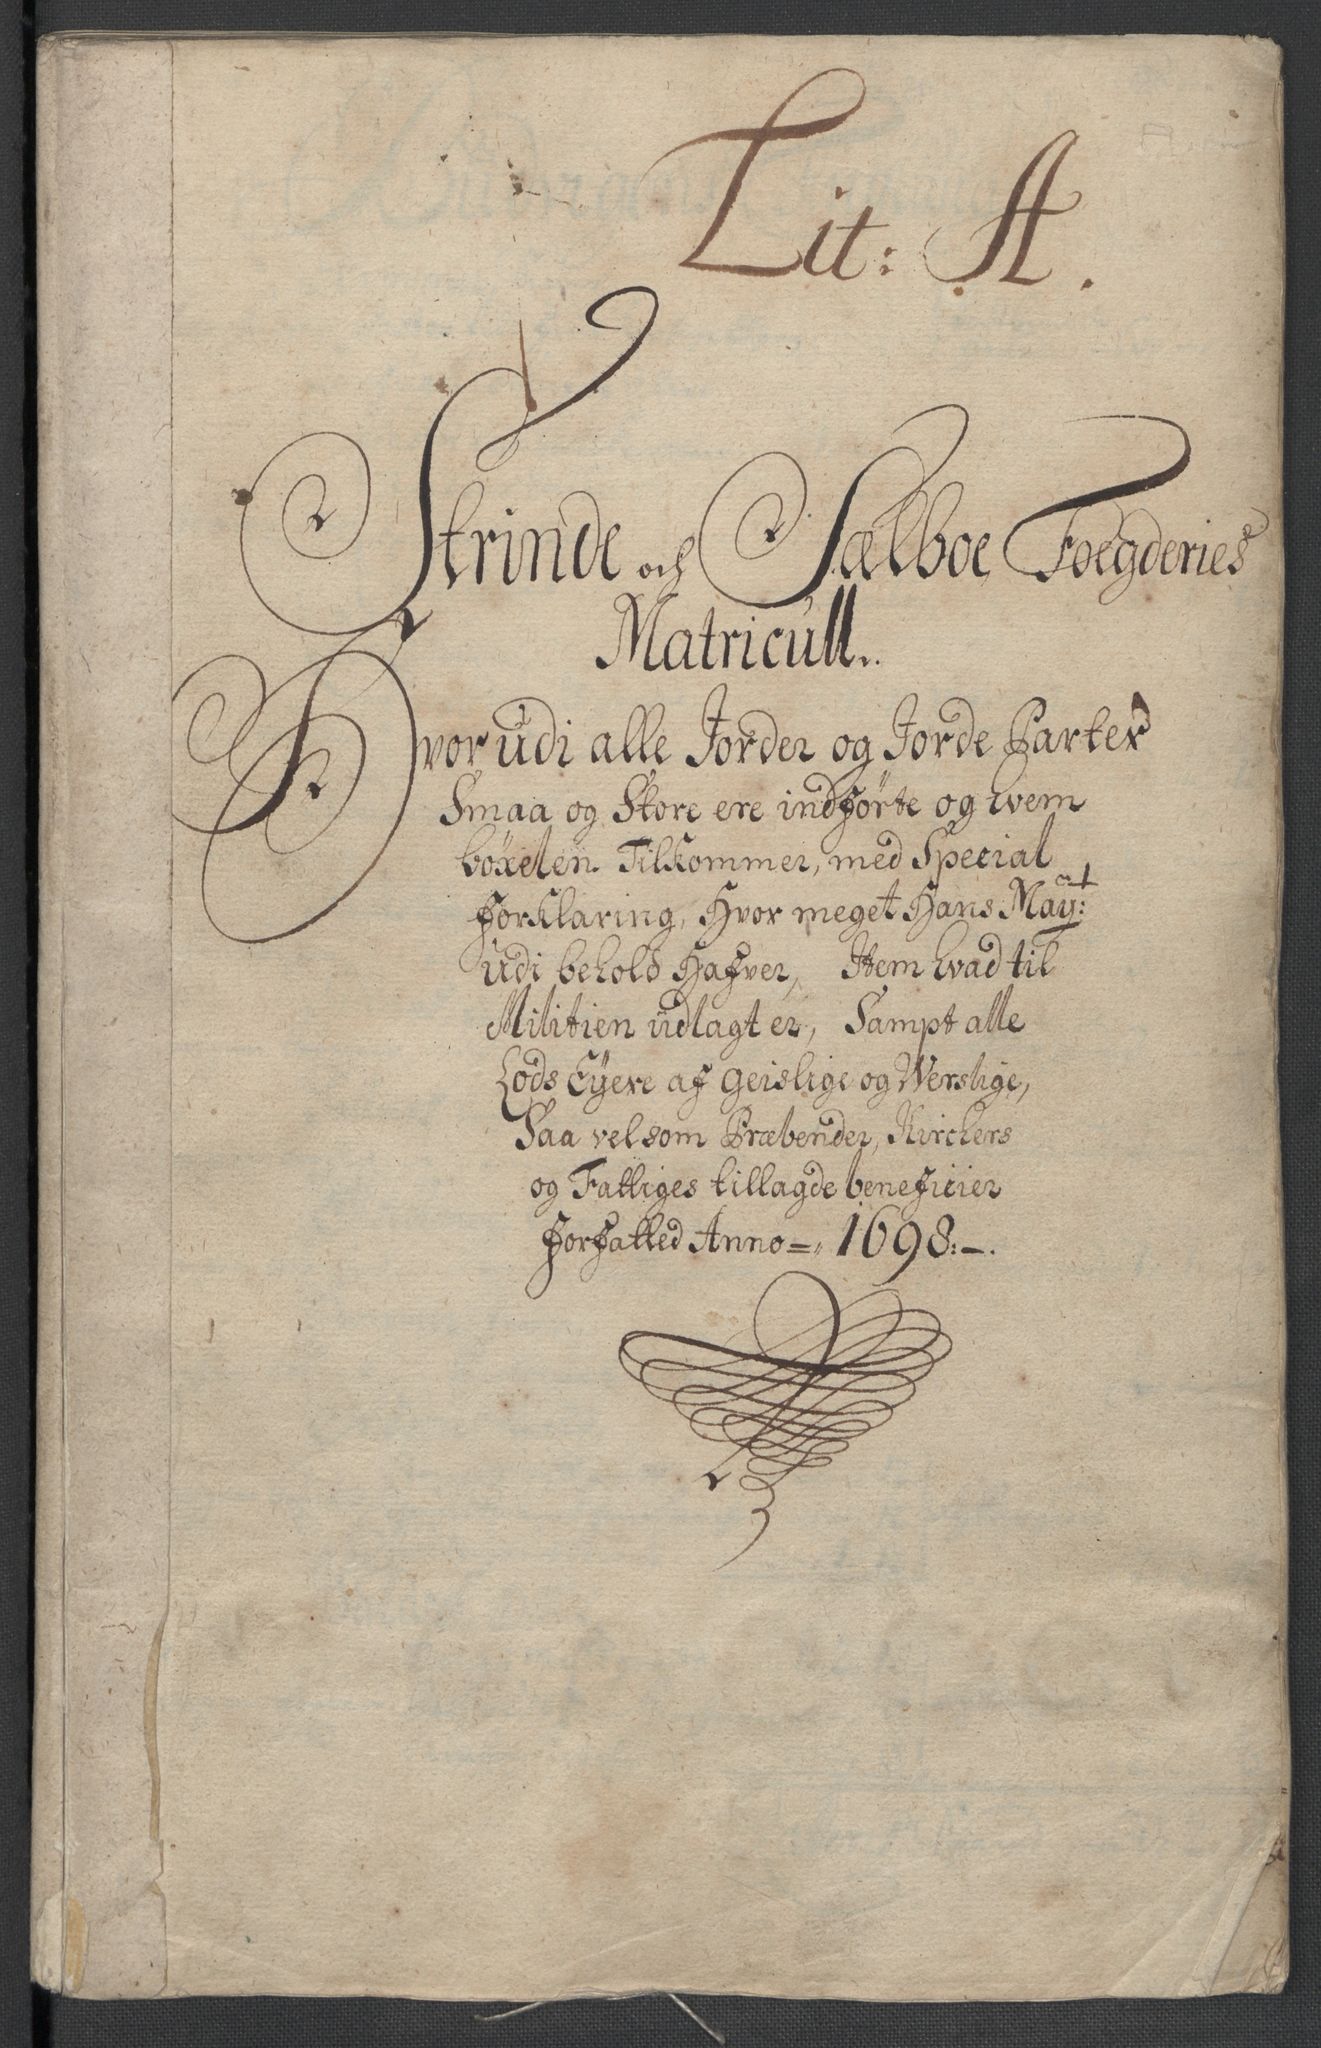 Lit: A.
Strinde och Sælboe Foegderies
Matricull.
Hvor udi alle Jorder og Jorde Parter
Smaa og Store ere indførte og hvem
böxelen Tilkommer, med Special
forklaring, Hvor meget Hans Mayt:
udi behold hafver, Item hvad til
Militien udlagt er, Sampt alle
Lods Eyere af Geislige og Werslige,
Saa velsom Præbender, Kirchers
og Fattiges tillagde beneficier
forfatted Anno = 1698:-.